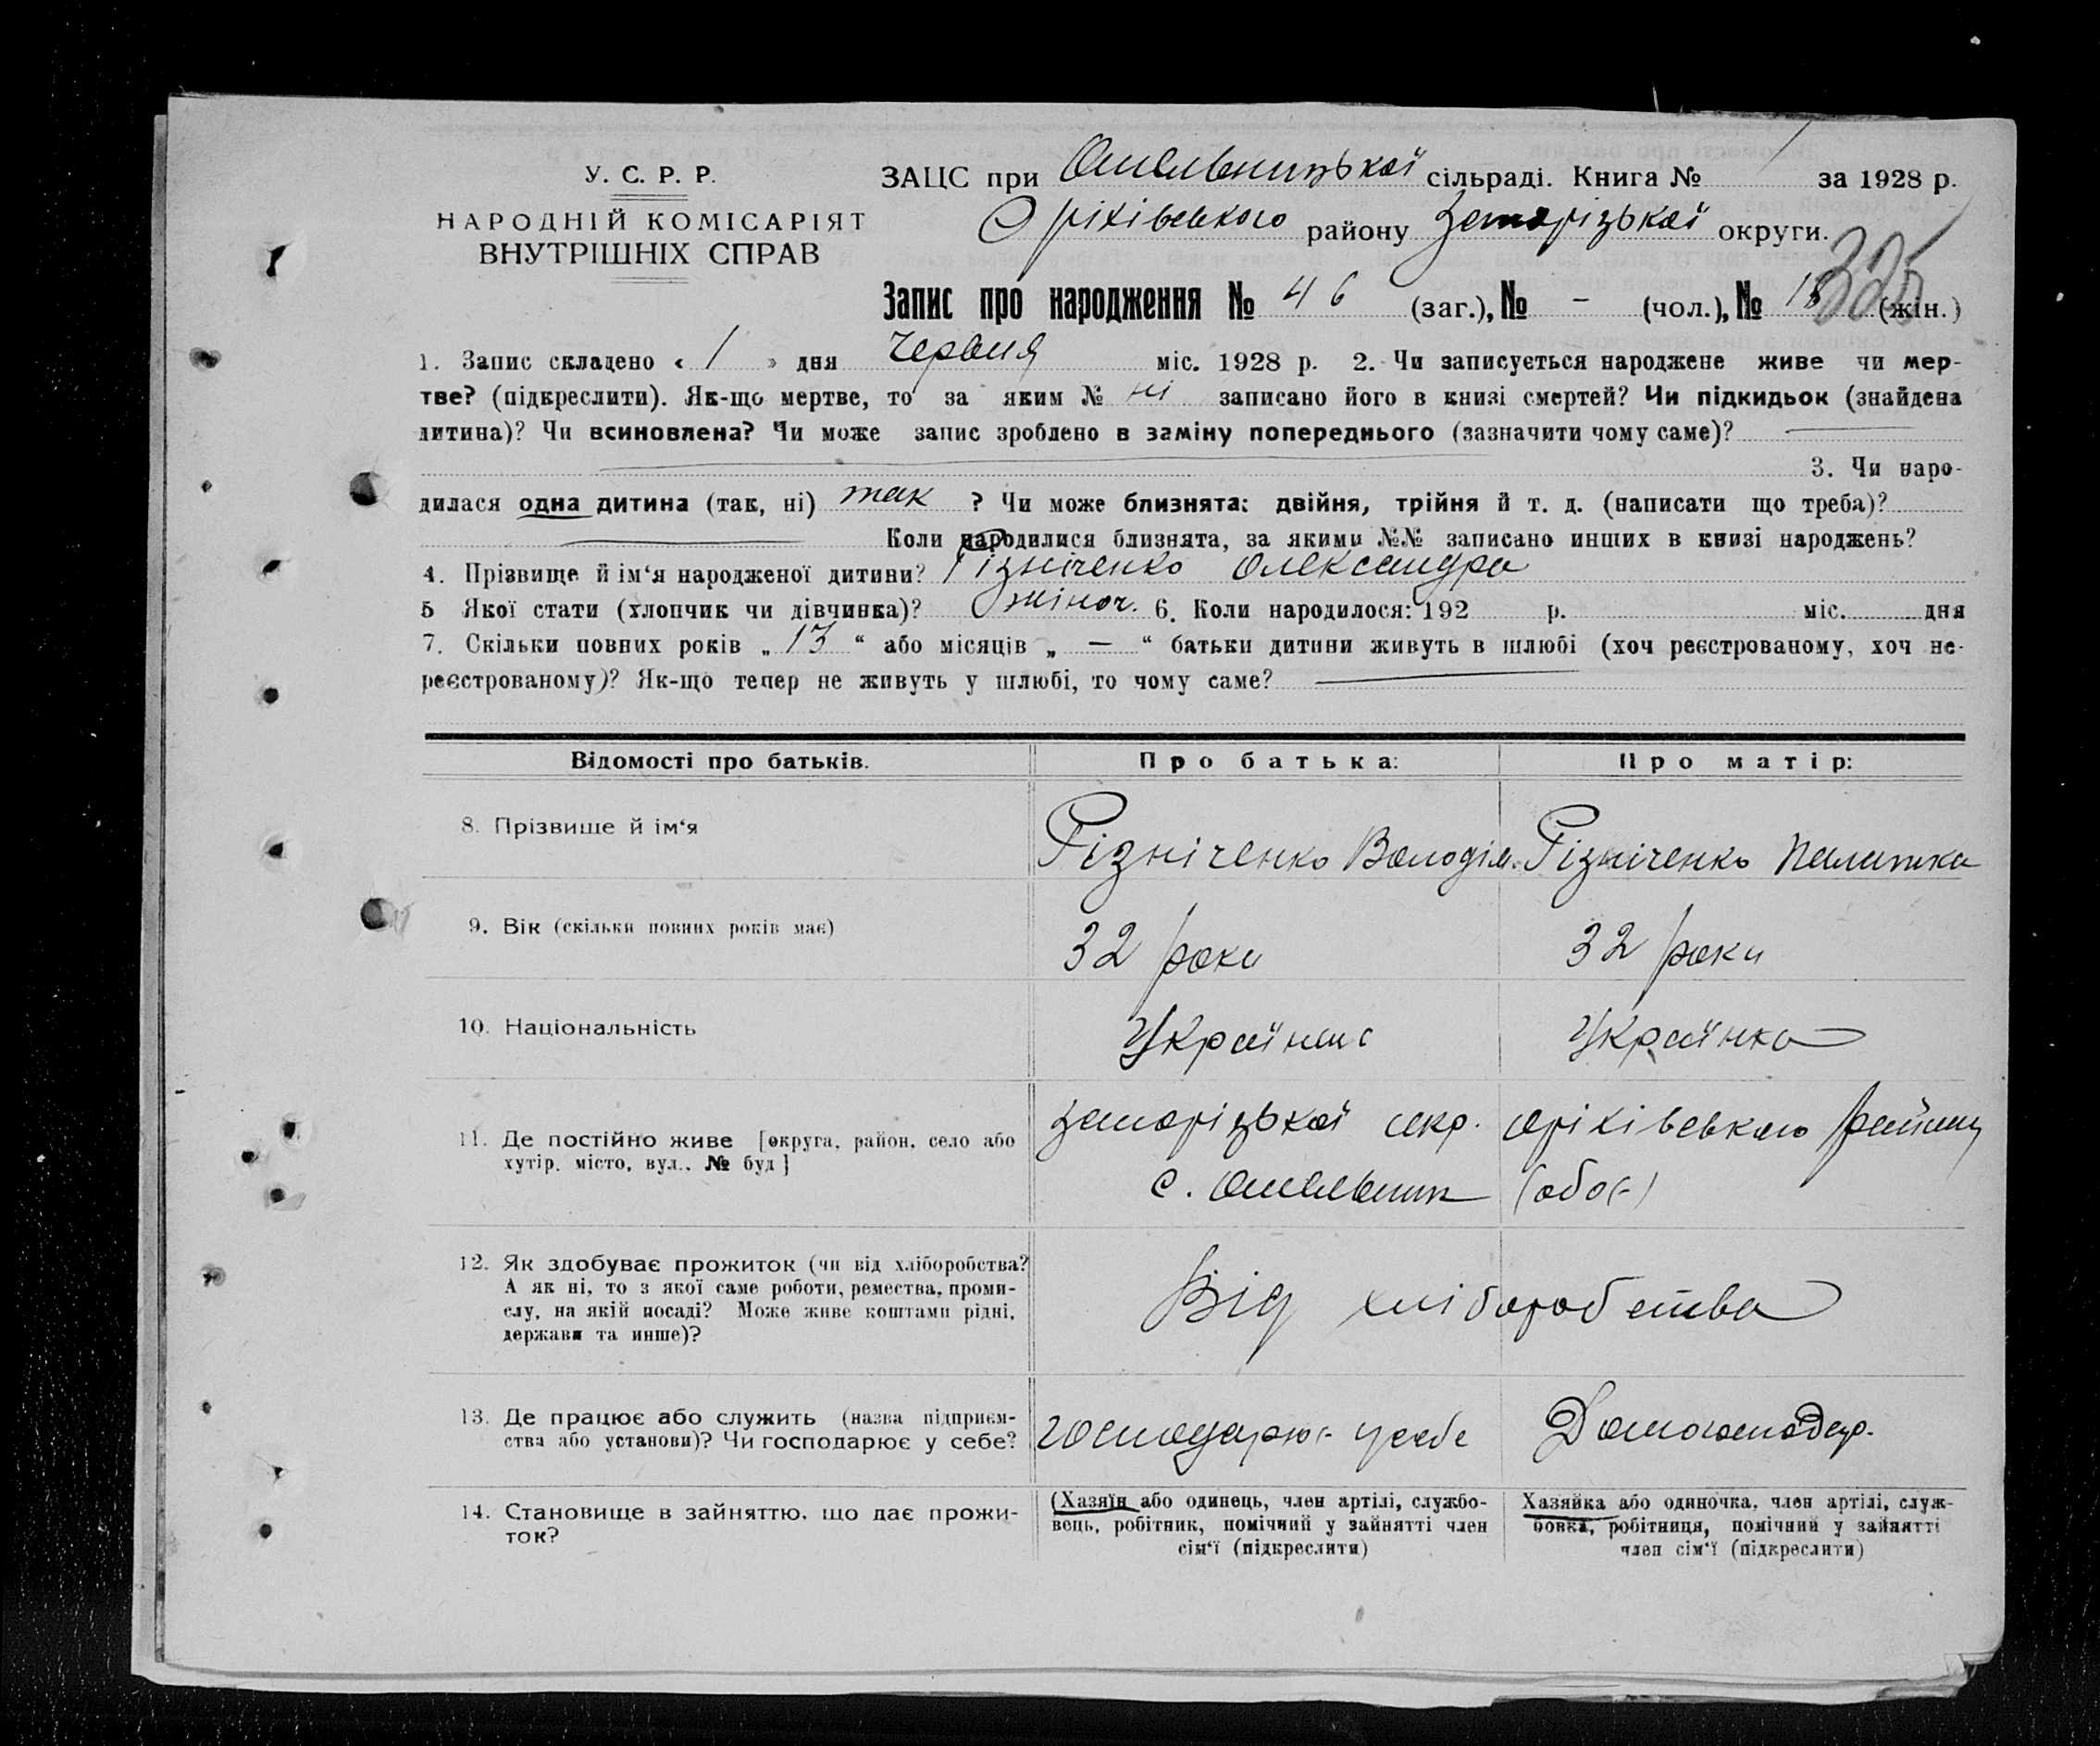 У. С. Р. Р.
НАРОДНІЙ КОМІСАРІЯТ
ВНУТРІШНІХ СПРАВ
ЗАЦС при Омельницької сільраді. Книга № за 1928 р.
Оріхівського району Запорізької округи.
325
Запис про народження № 46 (заг.), № - (чол.), № 18 (жін.)
1. Запис складено « 1 » дня червня міс. 1928 р. 2. Чи записується народжене живе чи мер-
тве? (підкреслити). Як-що мертве, то за яким № ні записано його в книзі смертей? Чи підкидьок (знайдена
дитина)? Чи всиновлена? Чи може запис зроблено в заміну попереднього (зазначити чому саме)?
3. Чи наро-
дилася одна дитина (так, ні) так ? Чи може близнята: двійня, трійня й т. д. (написати що треба)?
Коли народилися близнята, за якими №№ записано инших в книзі народжень?
4. Прізвище й ім'я народженої дитини? Різніченко Олександра
5 Якої стати (хлопчик чи дівчинка)? жіноч. 6. Коли народилося: 192 р. міс. дня
7. Скільки повних років „ 13 “ або місяців „ — “ батьки дитини живуть в шлюбі (хоч реєстрованому, хоч не-
реєстрованому)? Як-що тепер не живуть у шлюбі, то чому саме?
Відомості про батьків. Про батька: Про матір:
8. Прізвище й ім'я Різніченко Володім. Різніченко
9. Вік (скільки повних років має) 32 роки 32 роки
10. Національність Українец Українка
11. Де постійно живе [округа, район, село або
хутір, місто, вул., № буд]
Запорізької окр. Оріхівського району
с. Омельник (обоє)
12. Як здобуває прожиток (чи від хліборобства?
А як ні, то з якої саме роботи, ремества, проми-
слу, на якій посаді? Може живе коштами рідні,
держави та инше)?
Від хліборобства
13. Де працює або служить (назва підприєм-
ства або установи)? Чи господарює у себе?
господарює у себе Домогосподар.
14. Становище в зайняттю, що дає прожи-
ток?
(Хазяїн або одинець, член артілі, службо-
вець, робітник, помічний у зайнятті член
сім'ї (підкреслити)
Хазяйка або одиночка, член артілі, служ-
бовка, робітниця, помічний у зайнятті
член сім'ї (підкреслити)